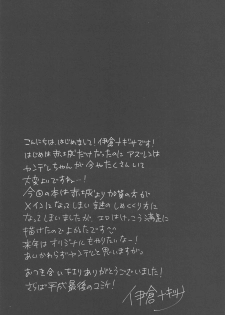 こんにちは、はじめまして!伊倉ナギサです!
はじめは赤城だけだったのに アズレンは
ヤンデレちゃんが今やたくさんいて
大変よいですねー!
今回の本は赤城より加賀の方が
メインになってしまい謎のしめくくりに
なってしまいましたが、エロはけっこう満足に
描けたのでよかったです
来年はオリジナルもやりたいなー!
あいかわらずヤンデレと思いますが。
おつき合い下さりありがとうございました!
さらば平成最後のコミケ!
伊倉ナギサ